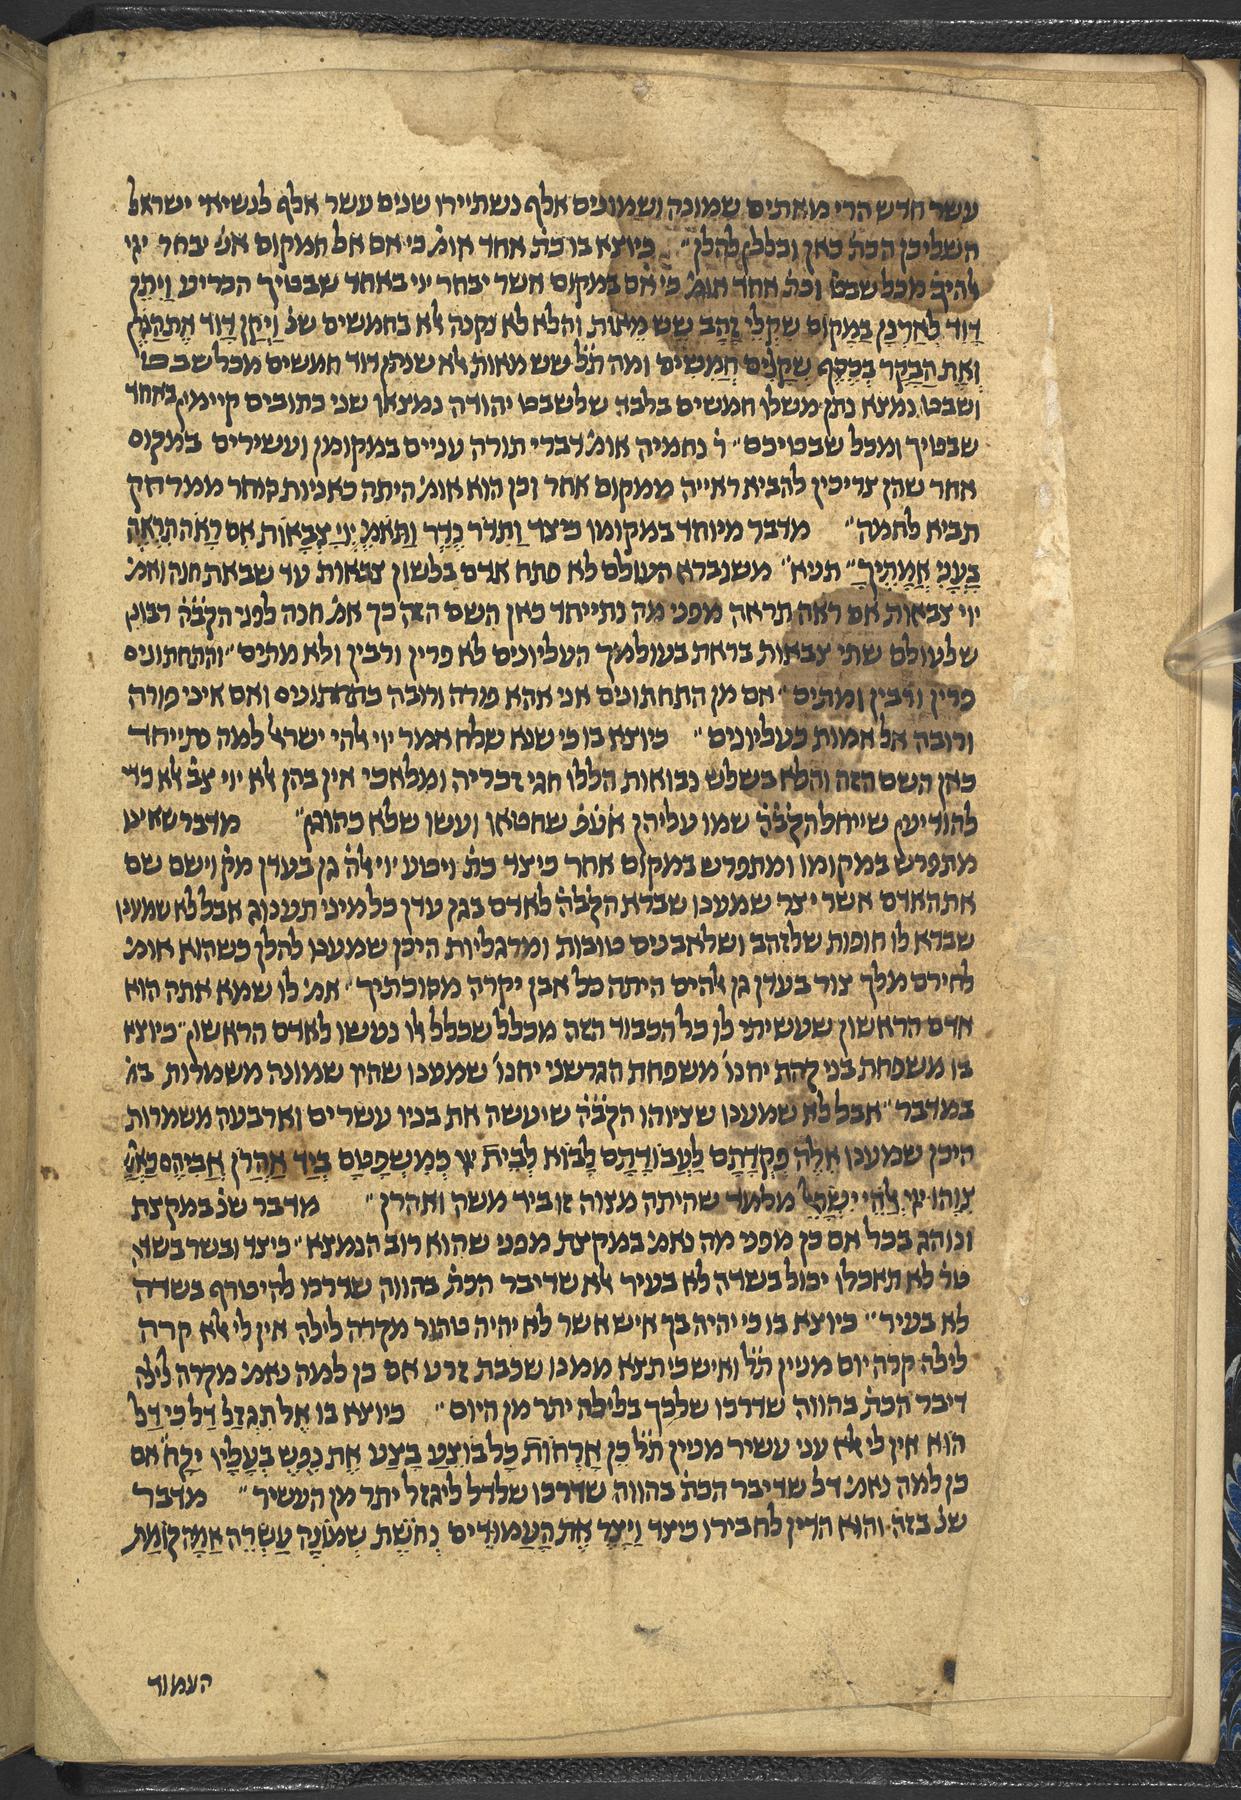 עשר חדש הרי מאתים שמונה ושמונים אלף נשתיירו שנים עשר אלף לנשיאי ישראל
השליכן הכת׳ כאן וכללן להלן״ כיוצא בו כת׳ אחד אומ׳ כי אם אל המקום אש׳ יבחר ייי
להיכ׳ מכל שבט׳ וכת׳ אחד אומ׳ כי אם במקום אשר יבחר ייי באחד שבטיך הכריע וַיִתֵן
דָוִד לְאָרְנָן בַמָקוֹם שִקְלֵי זָהָב שֵש מֵאוֹת והלא לא נקנה אלא בחמשים שנ׳ וַיִקֶן דָוִד אֶת הַגֹרֶן
וְאֶת הַבָקָר בְכֶסֶף שְקָלִים חֲמִשִים ומה ת״ל שש מאות אלא שנתן דוד חמשים מכל שבט
ושבט נמצא נתן משלו חמשים בלבד שלשבט יהודה נמצאו שני כתובים קיימין באחד
שבטיך ומכל שבטיכם״ ר׳ נחמיה אומ׳ דברי תורה עניים במקומן ועשירים במקום
אחר שהן צריכין להביא ראייה ממקום אחר וכן הוא אומ׳ היתה כאניות סוחר ממרחק
תביא לחמה״ מדבר מיוחד במקומו כיצד וַתִדֹר נֶדֶר וַתֹאמֶר יְיָי צְבָאוֹת אִם רָאֹה תִרְאֶה
בָעֳנִי אֲמָתֶיךָ״ תניא״ משנברא העולם לא פתח אדם בלשון צבאות עד שבאת חנה ואמ׳
יוי צבאות אם ראה תראה מפני מה נתייחד כאן השם הזה כך אמ׳ חנה לפני הקב״ה רבון
שלעולם שתי צבאות בראת בעולמך העליונים לא פרין ורבין ולא מתים״ והתחתונים
פרין ורבין ומתים״ אם מן התחתונים אני אהא פורה ורובה כתחתונים ואם איני פורה
ורובה אל אמות כעליונים״ כיוצא בו כי שנא שלח אמר יוי אלהי ישראל למה נתייחד
כאן השם הזה והלא בשלש נבואות הללו חגי זכריה ומלאכי אין בהן אלא יוי צב׳ אלא כדי
להודיעך שייחל הקב״ה שמו עליהן אעפ׳ שחטאו ועשו שלא כהוגן״ מדבר שאינו
מתפרש במקומו ומתפרש במקום אחר כיצד כת׳ ויטע יוי אלה׳ גן בעדן מק׳ וישם שם
את האדם אשר יצר שמענו שברא הקב״ה לאדם בגן עדן כל מיני תענוג אבל לא שמענו
שברא לו חופות שלזהב ושלאבנים טובות ומרגליות היכן שמענו להלן כשהוא אומ׳
לחירם מלך צור בעדן גן אלהים היתה כל אבן יקרה מסוכתיך״ אמ׳ לו שמא אתה הוא
אדם הראשון שעשיתי לו כל הכבוד הזה מכלל שכלל לו נעשו לאדם הראשון״ כיוצא
בו משפחת בני קהת יחנו׳ משפחת הגרשני יחנו׳ שמענו שהיו שמונה משמרות בו׳
במדבר״ אבל לא שמענו שציוהו הקב״ה שיעשה את בניו עשרים וארבעה משמרות
היכן שמענו אֵלֶה פְקֻדָתָם לַעֲבוֹדָתָם לָבוֹא לְבֵית יי׳ כְמִשְפָטָם בְיַד אַהֲרֹן אֲבִיהֶם כַאֲשֶׁר
צִוָהוּ ייי אֱלֹהֵי יִשְרָאֵל מלמד שהיתה מצוה זו ביד משה ואהרן״ מדבר שנ׳ במקצת
ונוהג בכל אם כן מפני מה נאמ׳ במקצת מפני שהוא רוב הנמצא״ כיצד ובשר בשדה
טר׳ לא תאכלו יכול בשדה לא בעיר אלא שדיבר הכת׳ בהווה שדרכו להיטרף בשדה
לא בעיר״ כיוצא בו כי יהיה בך איש אשר לא יהיה טהור מקרה לילה אין לי אלא קרה
לילה קרה יום מנין ת״ל ואיש כי תצא ממנו שכבת זרע אם כן למה נאמ׳ מקרה לילה
דיבר הכת׳ בהווה שדרכו שלכך בלילה יתר מן היום״ כיוצא בו אַל תִגְזָל דַל כִי דַל
הוּא אין לי אלא עני עשיר מנין ת״ל כֵן אָרְחוֹת כָל בוֹצֵעַ בָצַע אֶת נֶפֶש בְעָלָיו יִקָח׳ אם
כן למה נאמ׳ דל שדיבר הכת׳ בהווה שדרכו שלדל ליגזל יתר מן העשיר״ מדבר
שנ׳ בזה והוא הדין לחבירו כיצד וַיָצַר אֶת הָעַמוּדִים נְחֹשֶת שְמֹנֶה עֶשְרֵה אַמָה קוֹמַת
העמוד